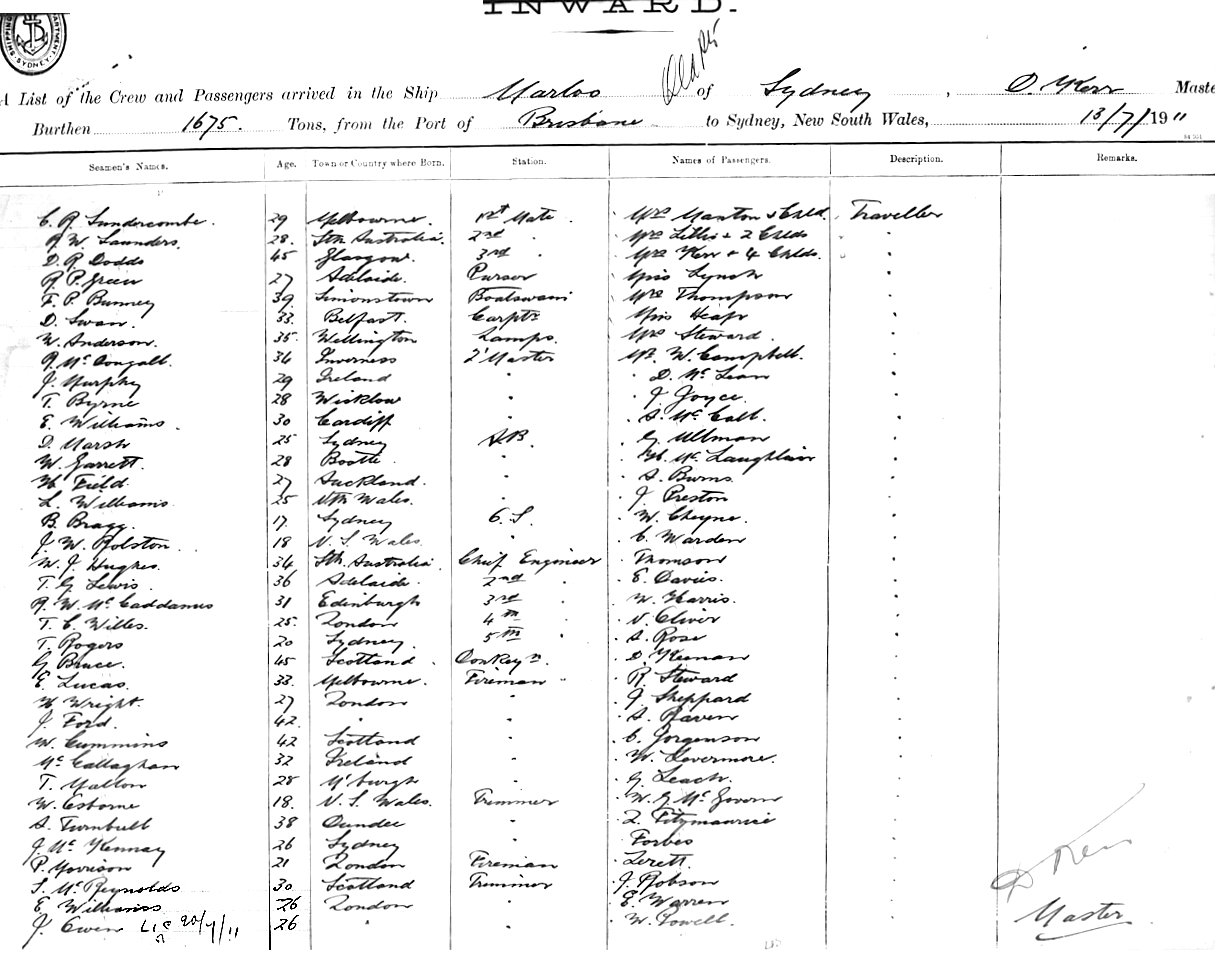 INWARD.
SHIPPING DEPARTMENT SYDNEY
A List of the Crew and Passengers arrived in the Ship Marloo of Sydney, D. Kerr Maste
Burthen 1675. Tons, from the Port of Brisbane to Sydney, New South Wales, 13/7/1911
Seamen's Names. Age. Town or Country where Born. Station. Names of Passengers. Description. Remarks.
29 Melbourne. 1st Mate Mrs Manton & Child Traveller
R. W. Saunders. 28. Sth Australia. 2nd " Mrs Lillis + 2 Chlds "
D. R. Dodds 45 Glasgow. 3rd " Mrs Kerr + 4 Chlds. "
R. P. Green 27 Adelaide. Purser Miss Lynch "
F. P. Bunney 39 Simonstown Boatswain Mrs Thompson "
D. Swan. 33. Belfast. Carptr Miss Heap "
W. Anderson. 35. Wellington Lamps. Mrs Steward "
34 Inverness 2' Master Mr W. Campbell. "
J. Murphy 29 Ireland " D. McLean "
T. Byrne 28 Wicklow " J. Joyce. "
E. Williams. 30 Cardiff " A. McCall. "
D. Marsh 25 Sydney A.B. G. Ullman "
W. Garrett. 28 Bootle. " H. McLaughlin "
H. Field 27 Auckland. " A. Burns. "
L. Williams 25 Nth Wales. " J. Preston "
B. Bragg. 17. Sydney O.S. W. Cheyne. "
J. W. Rolston. 18 N. S. Wales. " C. Warden "
W. J. Hughes. 34 Sth. Australia. Chief Engineer Thomson "
T. G. Lewis. 36 Adelaide. 2nd " E. Davies. "
R. W. McCaddamus 31 Edinburgh 3rd " W. Harris. "
T. C. Willes. 25. London 4th " V. Oliver "
T. Rogers 20 Sydney. 5th " A. Rose "
G. Bruce. 45 Scotland. Donkeyn. D. Keenan "
E. Lucas. 33. Melbourne. Fireman R. Steward "
H. Wright. 27 London " J. Sheppard "
J. Ford. 42. " " A. Raven "
W. Cummins 42 Scotland " C. Jorgenson "
McCallaghan 32 Ireland " W. Livermore. "
T. Mallon 28 M'burgh " G. Leach. "
W. Osborne 18. N. S. Wales. Trimmer W. G. McGovern "
A. Turnbull 38 Dundee " Fitzmaurice "
J. McKennay 26 Sydney " Forbes "
P. Morrison 21 London Fireman "
S. McReynolds 30 Scotland Trimmer J. Robson "
E. Williams 26 London " E. Warren "
J. Owen 20/7/11 26 " " W. Lowell. "
D Kerr
Master